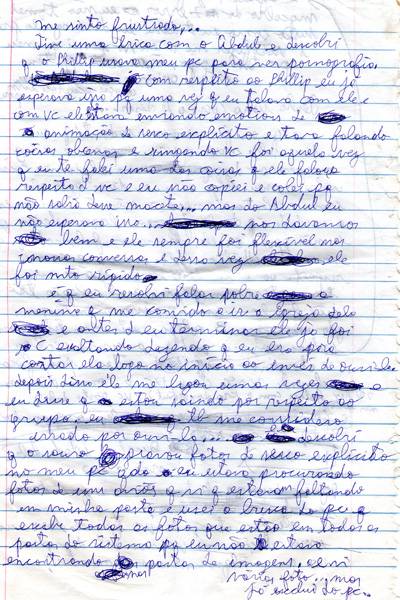 me sinto frustrado...
Tive uma briga com o Abdul e descobri
q o Phillip usava meu pc para ver pornografia.
com respeito ao Phillip eu já
esperava isso pq uma vez q eu falava com ele e
com vc ele estava enviando emotions de
animação de sexo explícito e tava falando
coisas obcenas e xingando vc foi aquela vez
q eu te falei uma das coisas q ele falava
respeito d vc e eu não copiei e colei pq
não sabia desse macete... mas do Abdul eu
não esperava isso... nos davamos
bem e ele sempre foi flexível nas
nossas conversas e dessa vez ele
foi mto rígido
é q eu resolvi falar sobre a
menina q me convidou a ir a igreja dela
e antes d eu terminar ele já foi
se exaltando dizendo q eu era pra
contar ela logo no início ao invés de ouvi-la
depois disso ele me ligou umas vezes e
eu disse q estou saindo por respeito ao
grupo, eu me considero
errado por ouvi-la... descobri
q o salvava fotos de sexo explícito
no meu pc qdo eu estava procurando
fotos de uns q vi q estavam faltando
em minha pasta e usei a busca do pc q
exibe todas as fotos que estao em todas as
pastas do sistema pq eu não estava
encontrando pastas de imagens, e vi
várias foto... mas
já exclui do pc...